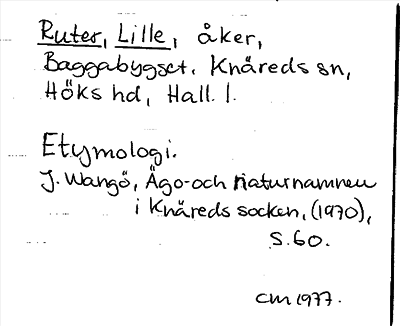 Ruter, Lille, åker,
Baggabygget. Knäreds sn,
Höks hd, Hall. l.
Etymologi.
J. Wangö, Ägo- och naturnamnen
i Knäreds socken, (1970),
s. 60.
CM 1977.